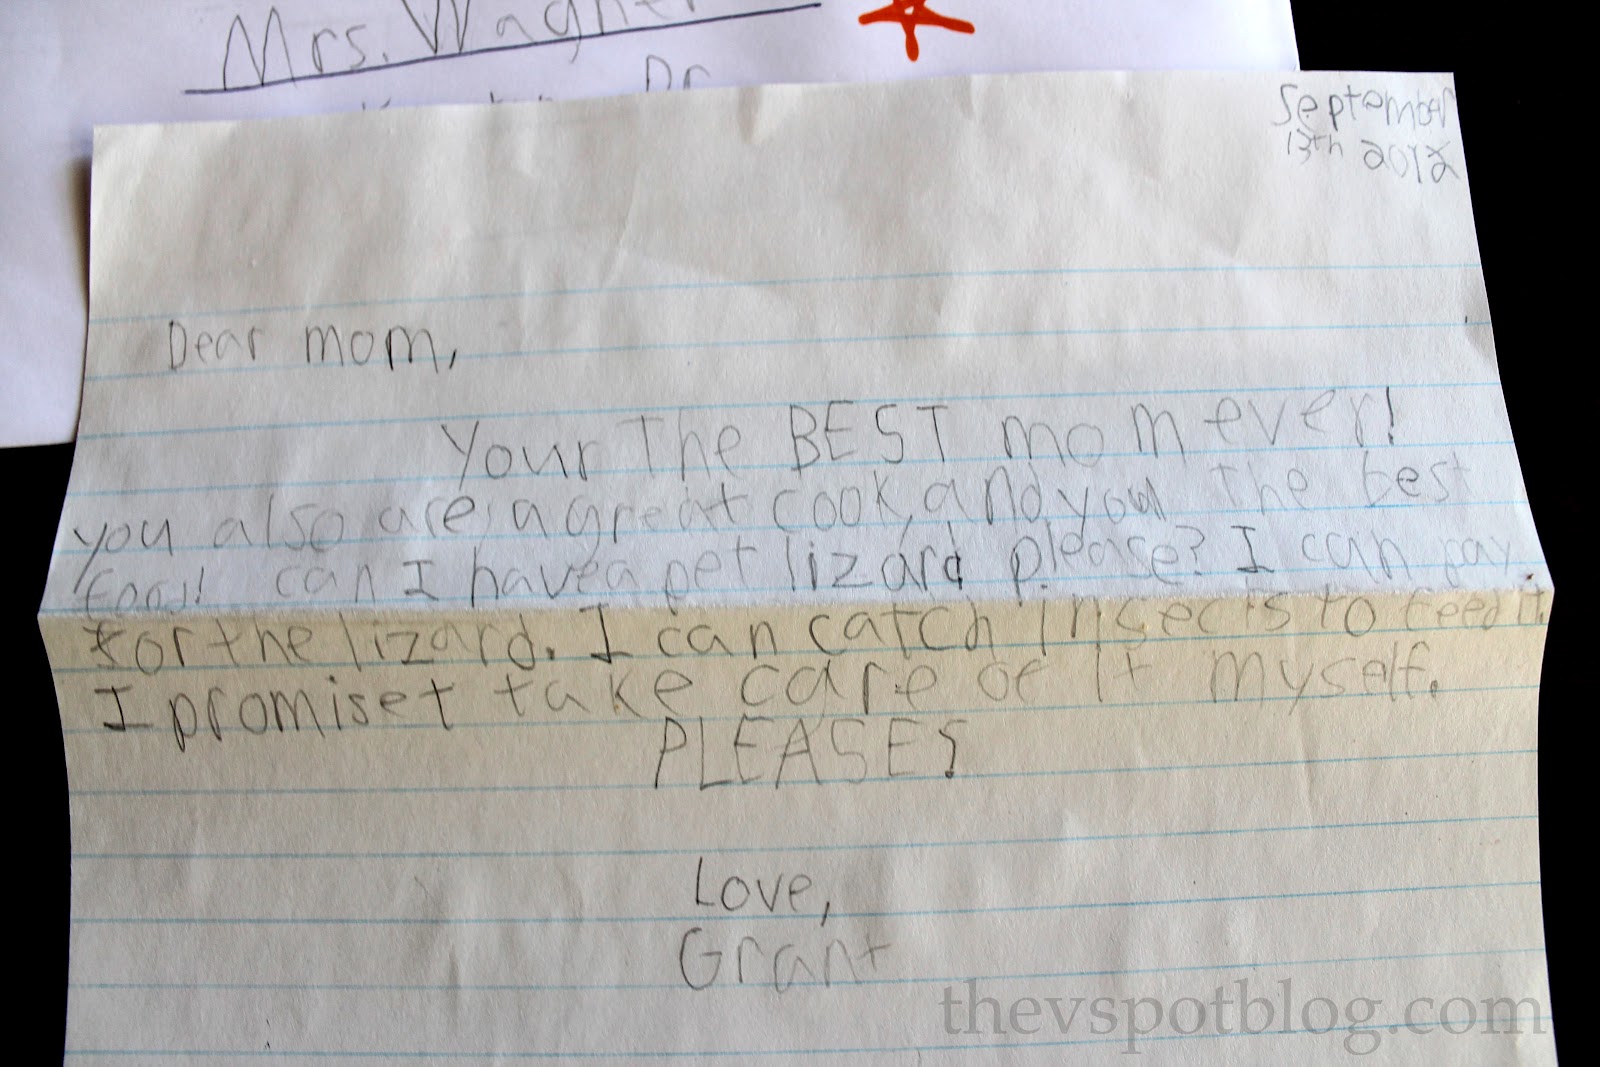 Mrs. Wagner
Dr
September
13th 2012
Dear mom,
Your The BEST mom ever!
you also are a great cook, and you the best
food! can I have a pet lizard please? I can pay
for the lizard. I can catch insects to feed it.
I promiset take care of it myself.
PLEASE?
Love,
Grant
thevspotblog.com